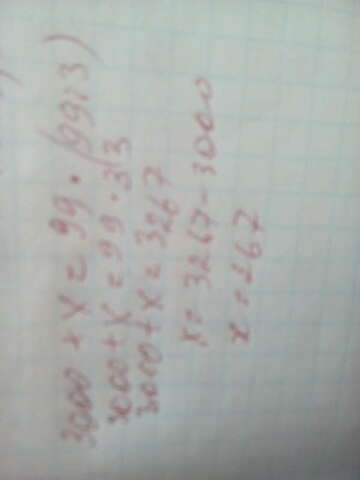 3000 + x = 99 · (99:3)
3000 + x = 99 · 33
3000 + x = 3267
x = 3267 - 3000
x = 267